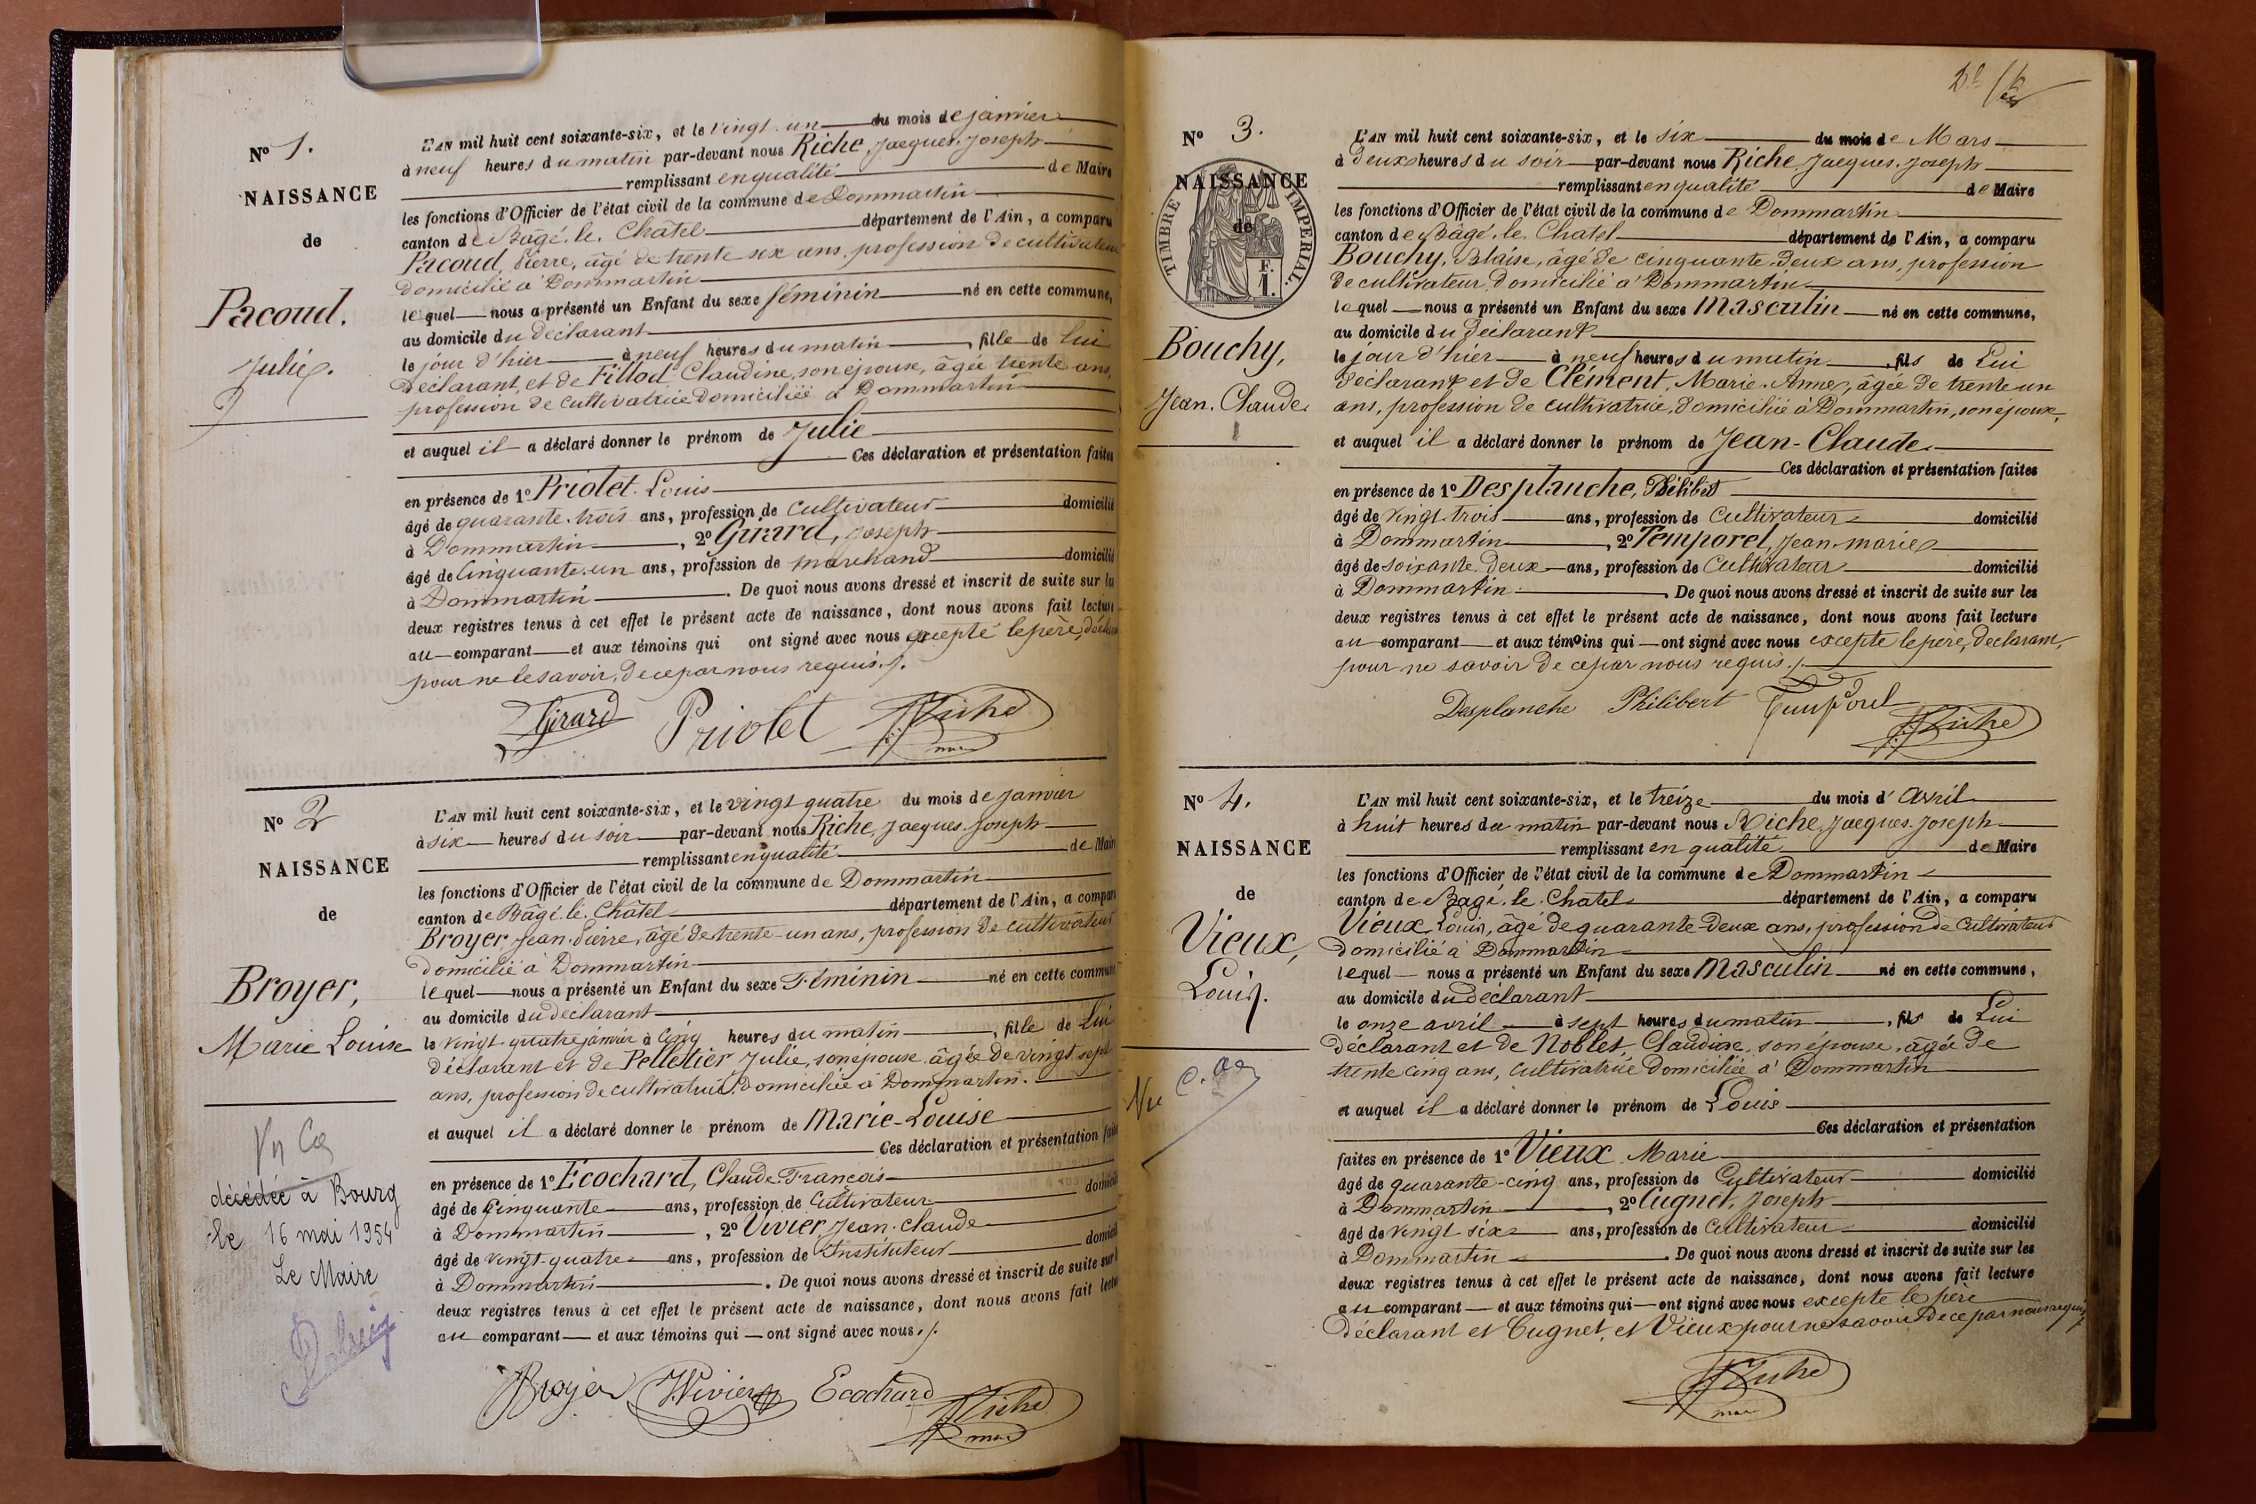 N° 1.
NAISSANCE
de
Pacoud.
Julie.
L'AN mil huit cent soixante-six, et le vingt-un du mois de janvier
à neuf heures du matin par-devant nous Riche, Jacques-Joseph
remplissant en qualité de Maire
les fonctions d'Officier de l'état civil de la commune de Dommartin
canton de Bâgé-le-Châtel département de l'Ain, a comparu
Pacoud, Pierre, âgé de trente six ans, profession de cultivateur
domicilié à Dommartin
lequel nous a présenté un Enfant du sexe féminin né en cette commune,
au domicile du déclarant
le jour d'hier à neuf heures du matin, fille de Lui
déclarant, et de Fillod, Claudine, son épouse, âgée trente ans,
profession de cultivatrice domiciliée à Dommartin
et auquel il a déclaré donner le prénom de Julie
Ces déclaration et présentation faites
en présence de 1° Priolet Louis
âgé de quarante-trois ans, profession de cultivateur domicilié
à Dommartin, 2° Girard, Joseph
âgé de Cinquante-un ans, profession de marchand domicilié
à Dommartin. De quoi nous avons dressé et inscrit de suite sur les
deux registres tenus à cet effet le présent acte de naissance, dont nous avons fait lecture
au comparant et aux témoins qui ont signé avec nous excepté le père,
pour ne le savoir, de ce par nous requis./.
Girard Priolet Riche
N° 2
NAISSANCE
de
Broyer,
Marie Louise
décédée à Bourg
le 16 mai 1954
Le Maire
L'AN mil huit cent soixante-six, et le vingt quatre du mois de janvier
à six heures du soir par-devant nous Riche, Jacques-Joseph
remplissant en qualité de Maire
les fonctions d'Officier de l'état civil de la commune de Dommartin
canton de Bâgé-le-Châtel département de l'Ain, a comparu
Broyer, Jean-Pierre, âgé de trente-un ans, profession de cultivateur
domicilié à Dommartin
lequel nous a présenté un Enfant du sexe Féminin né en cette commune
au domicile du déclarant
le vingt-quatre janvier à cinq heures du matin, fille de Lui
déclarant et de Pelletier, Julie, son épouse âgée de vingt sept
ans, profession de cultivatrice, domiciliée à Dommartin.
et auquel il a déclaré donner le prénom de Marie-Louise
Ces déclaration et présentation faites
en présence de 1° Ecochard, Claude-François
âgé de Cinquante ans, profession de Cultivateur domicilié
à Dommartin, 2° Vivier, Jean-Claude
âgé de vingt-quatre ans, profession de Instituteur domicilié
à Dommartin. De quoi nous avons dressé et inscrit de suite sur
deux registres tenus à cet effet le présent acte de naissance, dont nous avons fait lecture
au comparant et aux témoins qui ont signé avec nous./.
Broyer Vivier Ecochard Riche
N° 3.
NAISSANCE
de
TIMBRE IMPÉRIAL.
F.
1.
Bouchy,
Jean-Claude
L'AN mil huit cent soixante-six, et le six du mois de Mars
à deux heures du soir par-devant nous Riche, Jacques-Joseph
remplissant en qualité de Maire
les fonctions d'Officier de l'état civil de la commune de Dommartin
canton de Bâgé-le-Châtel département de l'Ain, a comparu
Bouchy, Blaise, âgé de cinquante-deux ans, profession
de cultivateur, domicilié à Dommartin
lequel nous a présenté un Enfant du sexe Masculin né en cette commune,
au domicile du déclarant
le jour d'hier à neuf heures du matin, fils de Lui
déclarant et de Clément, Marie-Anne, âgée de trente un
ans, profession de cultivatrice, domiciliée à Dommartin, son épouse,
et auquel il a déclaré donner le prénom de Jean-Claude
Ces déclaration et présentation faites
en présence de 1° Desplanche, Philibert
âgé de vingt-trois ans, profession de Cultivateur domicilié
à Dommartin, 2° Temporel, Jean-Marie
âgé de soixante-deux ans, profession de Cultivateur domicilié
à Dommartin. De quoi nous avons dressé et inscrit de suite sur les
deux registres tenus à cet effet le présent acte de naissance, dont nous avons fait lecture
au comparant et aux témoins qui ont signé avec nous excepté le père, déclarant,
pour ne savoir de ce par nous requis./.
Desplanche Philibert Temporel
Riche
N° 4.
NAISSANCE
de
Vieux,
Louis.
Vu
L'AN mil huit cent soixante-six, et le treize du mois d'avril
à huit heures du matin par-devant nous Riche, Jacques-Joseph
remplissant en qualité de Maire
les fonctions d'Officier de l'état civil de la commune de Dommartin
canton de Bâgé-le-Châtel département de l'Ain, a comparu
Vieux, Louis, âgé de quarante-deux ans, profession de cultivateur
domicilié à Dommartin
lequel nous a présenté un Enfant du sexe Masculin né en cette commune,
au domicile du déclarant
le onze avril à sept heures du matin, fils de Lui
déclarant et de Noblet, Claudine, son épouse, âgée de
trente cinq ans, cultivatrice domiciliée à Dommartin
et auquel il a déclaré donner le prénom de Louis
Ces déclaration et présentation
faites en présence de 1° Vieux Marie
âgé de quarante-cinq ans, profession de Cultivateur domicilié
à Dommartin, 2° Cugnet, Joseph
âgé de vingt six ans, profession de cultivateur domicilié
à Dommartin. De quoi nous avons dressé et inscrit de suite sur les
deux registres tenus à cet effet le présent acte de naissance, dont nous avons fait lecture
au comparant et aux témoins qui ont signé avec nous excepté le père
déclarant et Cugnet, et Vieux pour ne savoir de ce par nous requis
Riche